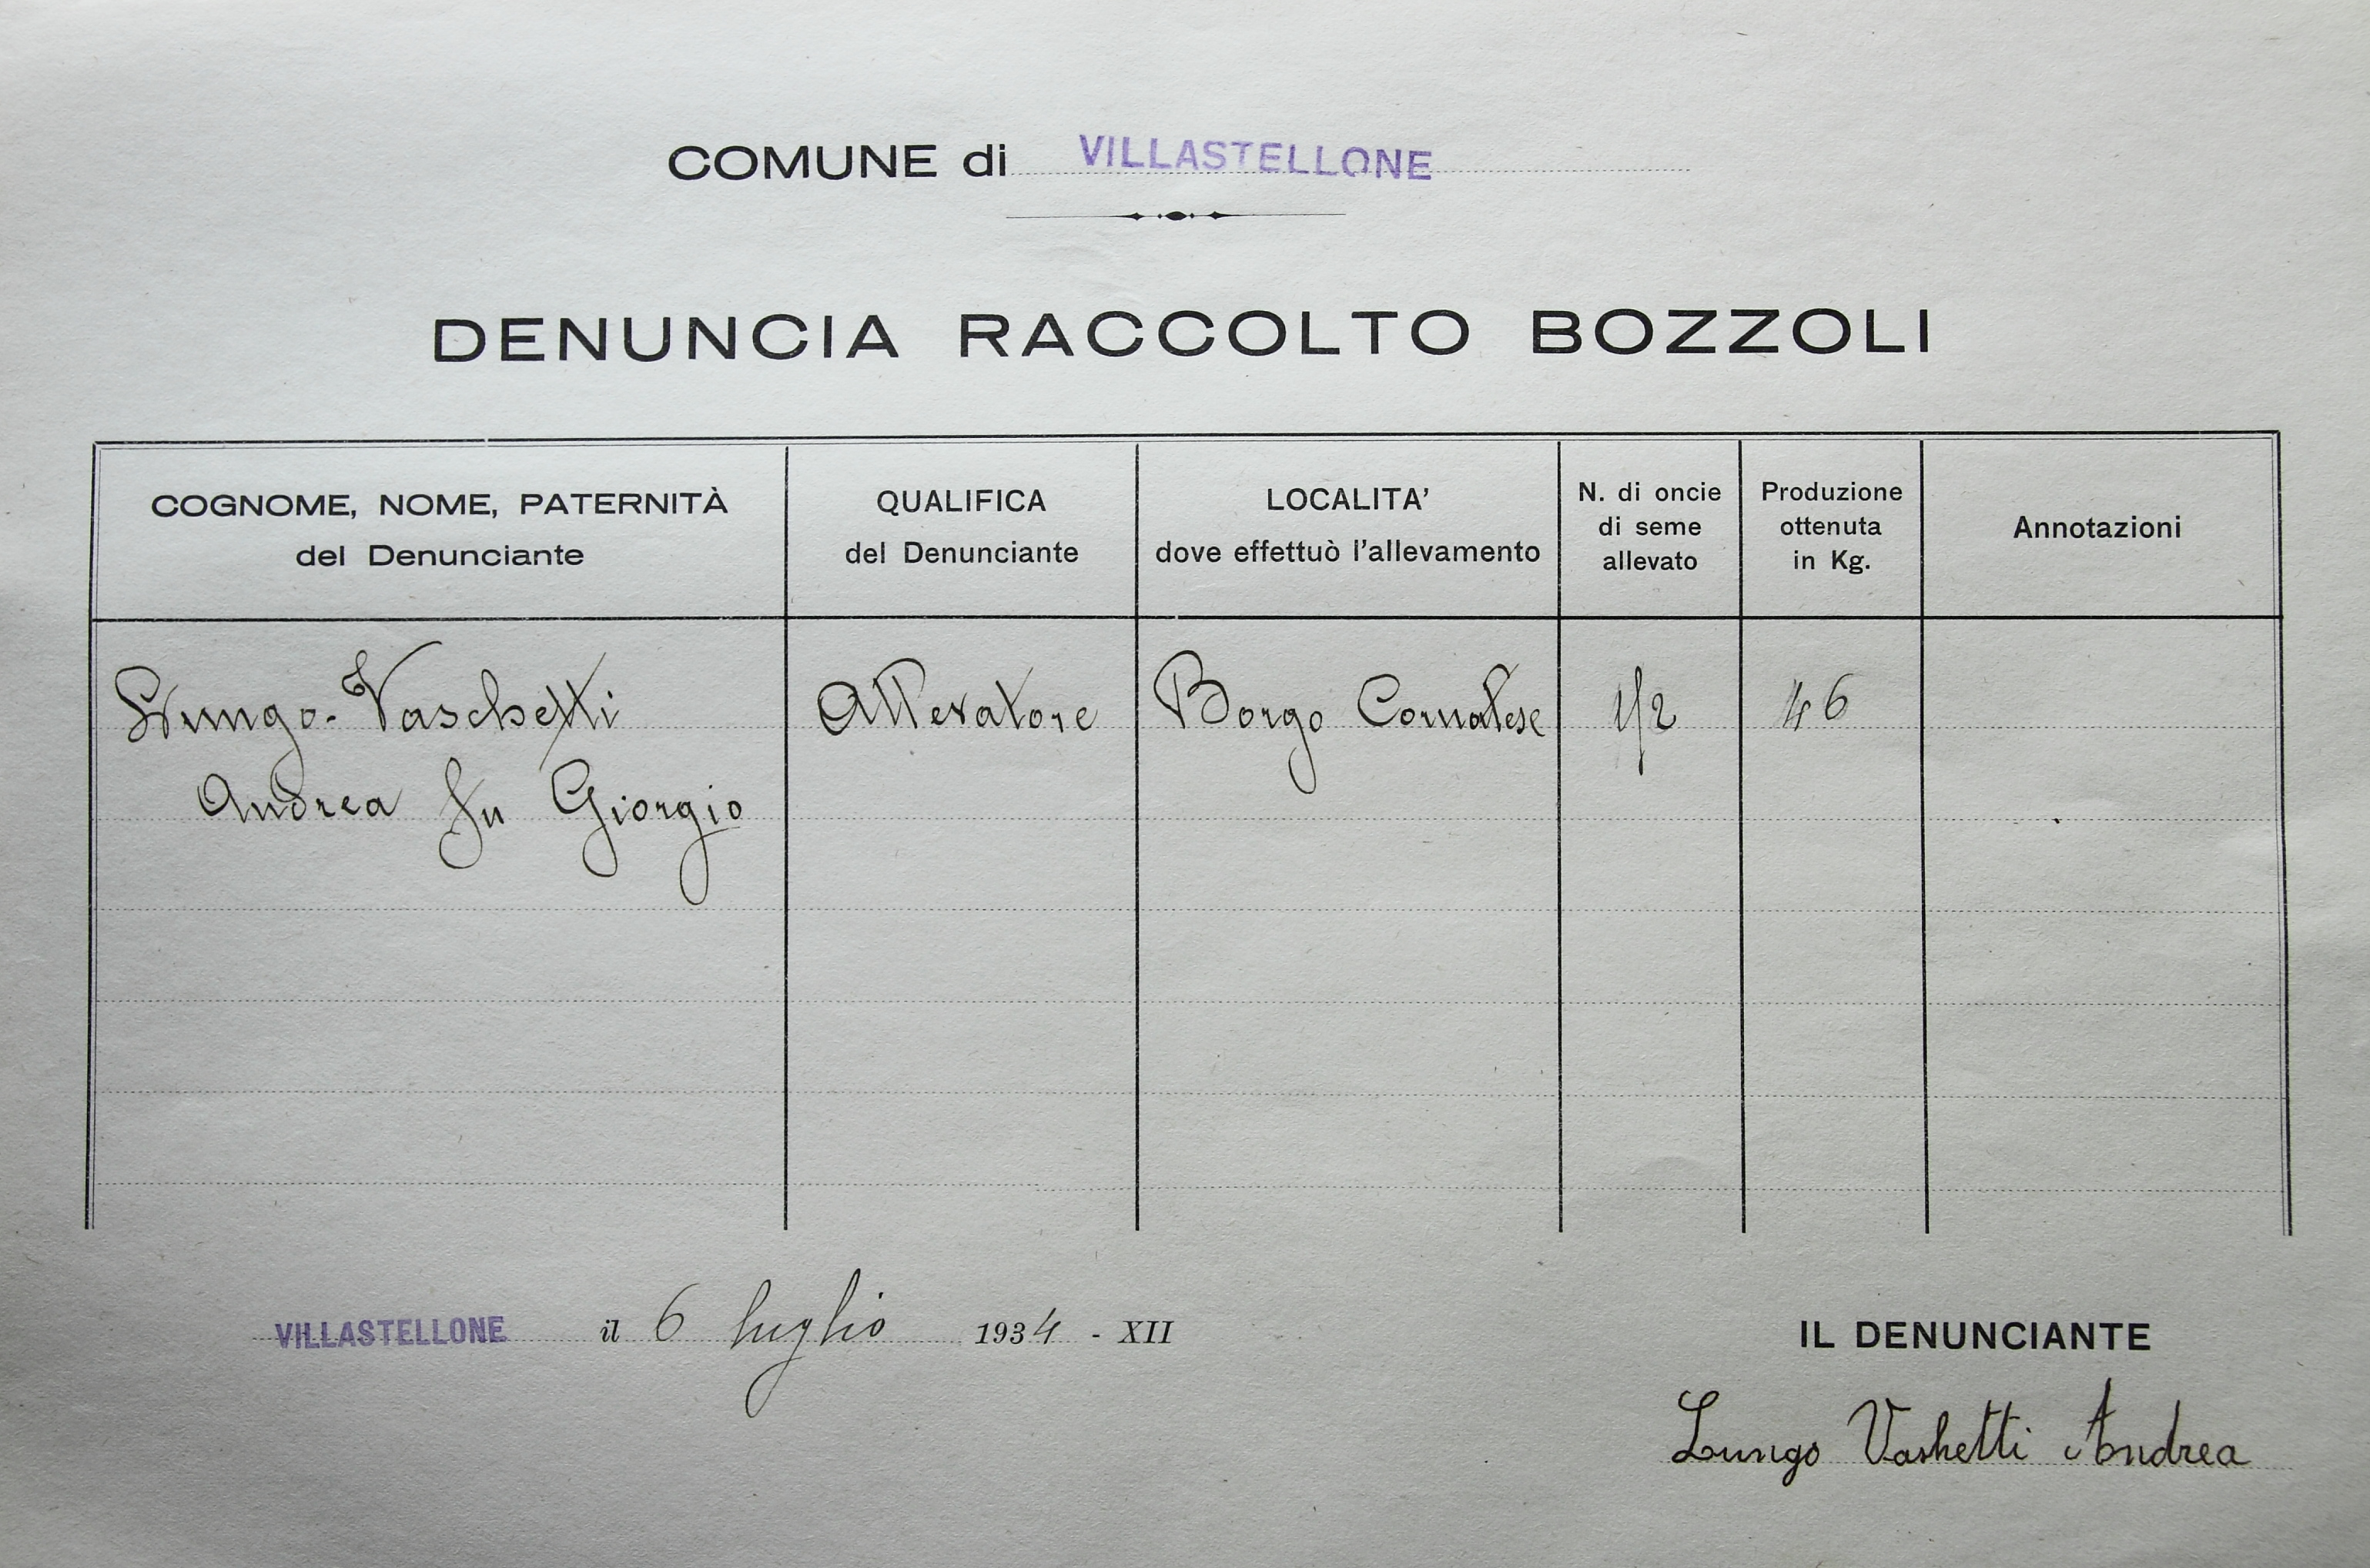 COMUNE di VILLASTELLONE
DENUNCIA RACCOLTO BOZZOLI
COGNOME, NOME, PATERNITÀ
del Denunciante
QUALIFICA
del Denunciante
LOCALITA'
dove effettuò l'allevamento
N. di oncie
di seme
allevato
Produzione
ottenuta
in Kg.
Annotazioni
Lungo-Vaschetti
Andrea fu Giorgio
Allevatore
Borgo Cornalese
1/2
46
VILLASTELLONE il 6 luglio 1934 - XII
IL DENUNCIANTE
Lungo Vashetti Andrea